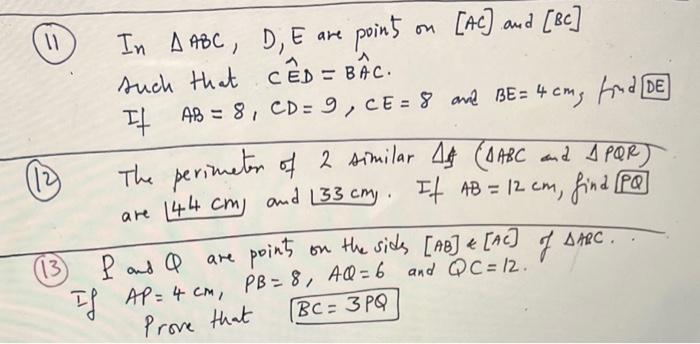 11 In Δ ABC, D, E are points on [AC] and [BC]
such that CÊD = BÂC.
If AB = 8, CD = 9, CE = 8 and BE = 4 cm, find DE
12 The perimeter of 2 similar Δs (ΔABC and ΔPQR)
are 44 cm, and 33 cm. If AB = 12 cm, find PQ
13 P and Q are points on the sides [AB] & [AC] of ΔABC.
If AP = 4 cm, PB = 8, AQ = 6 and QC = 12.
Prove that BC = 3PQ